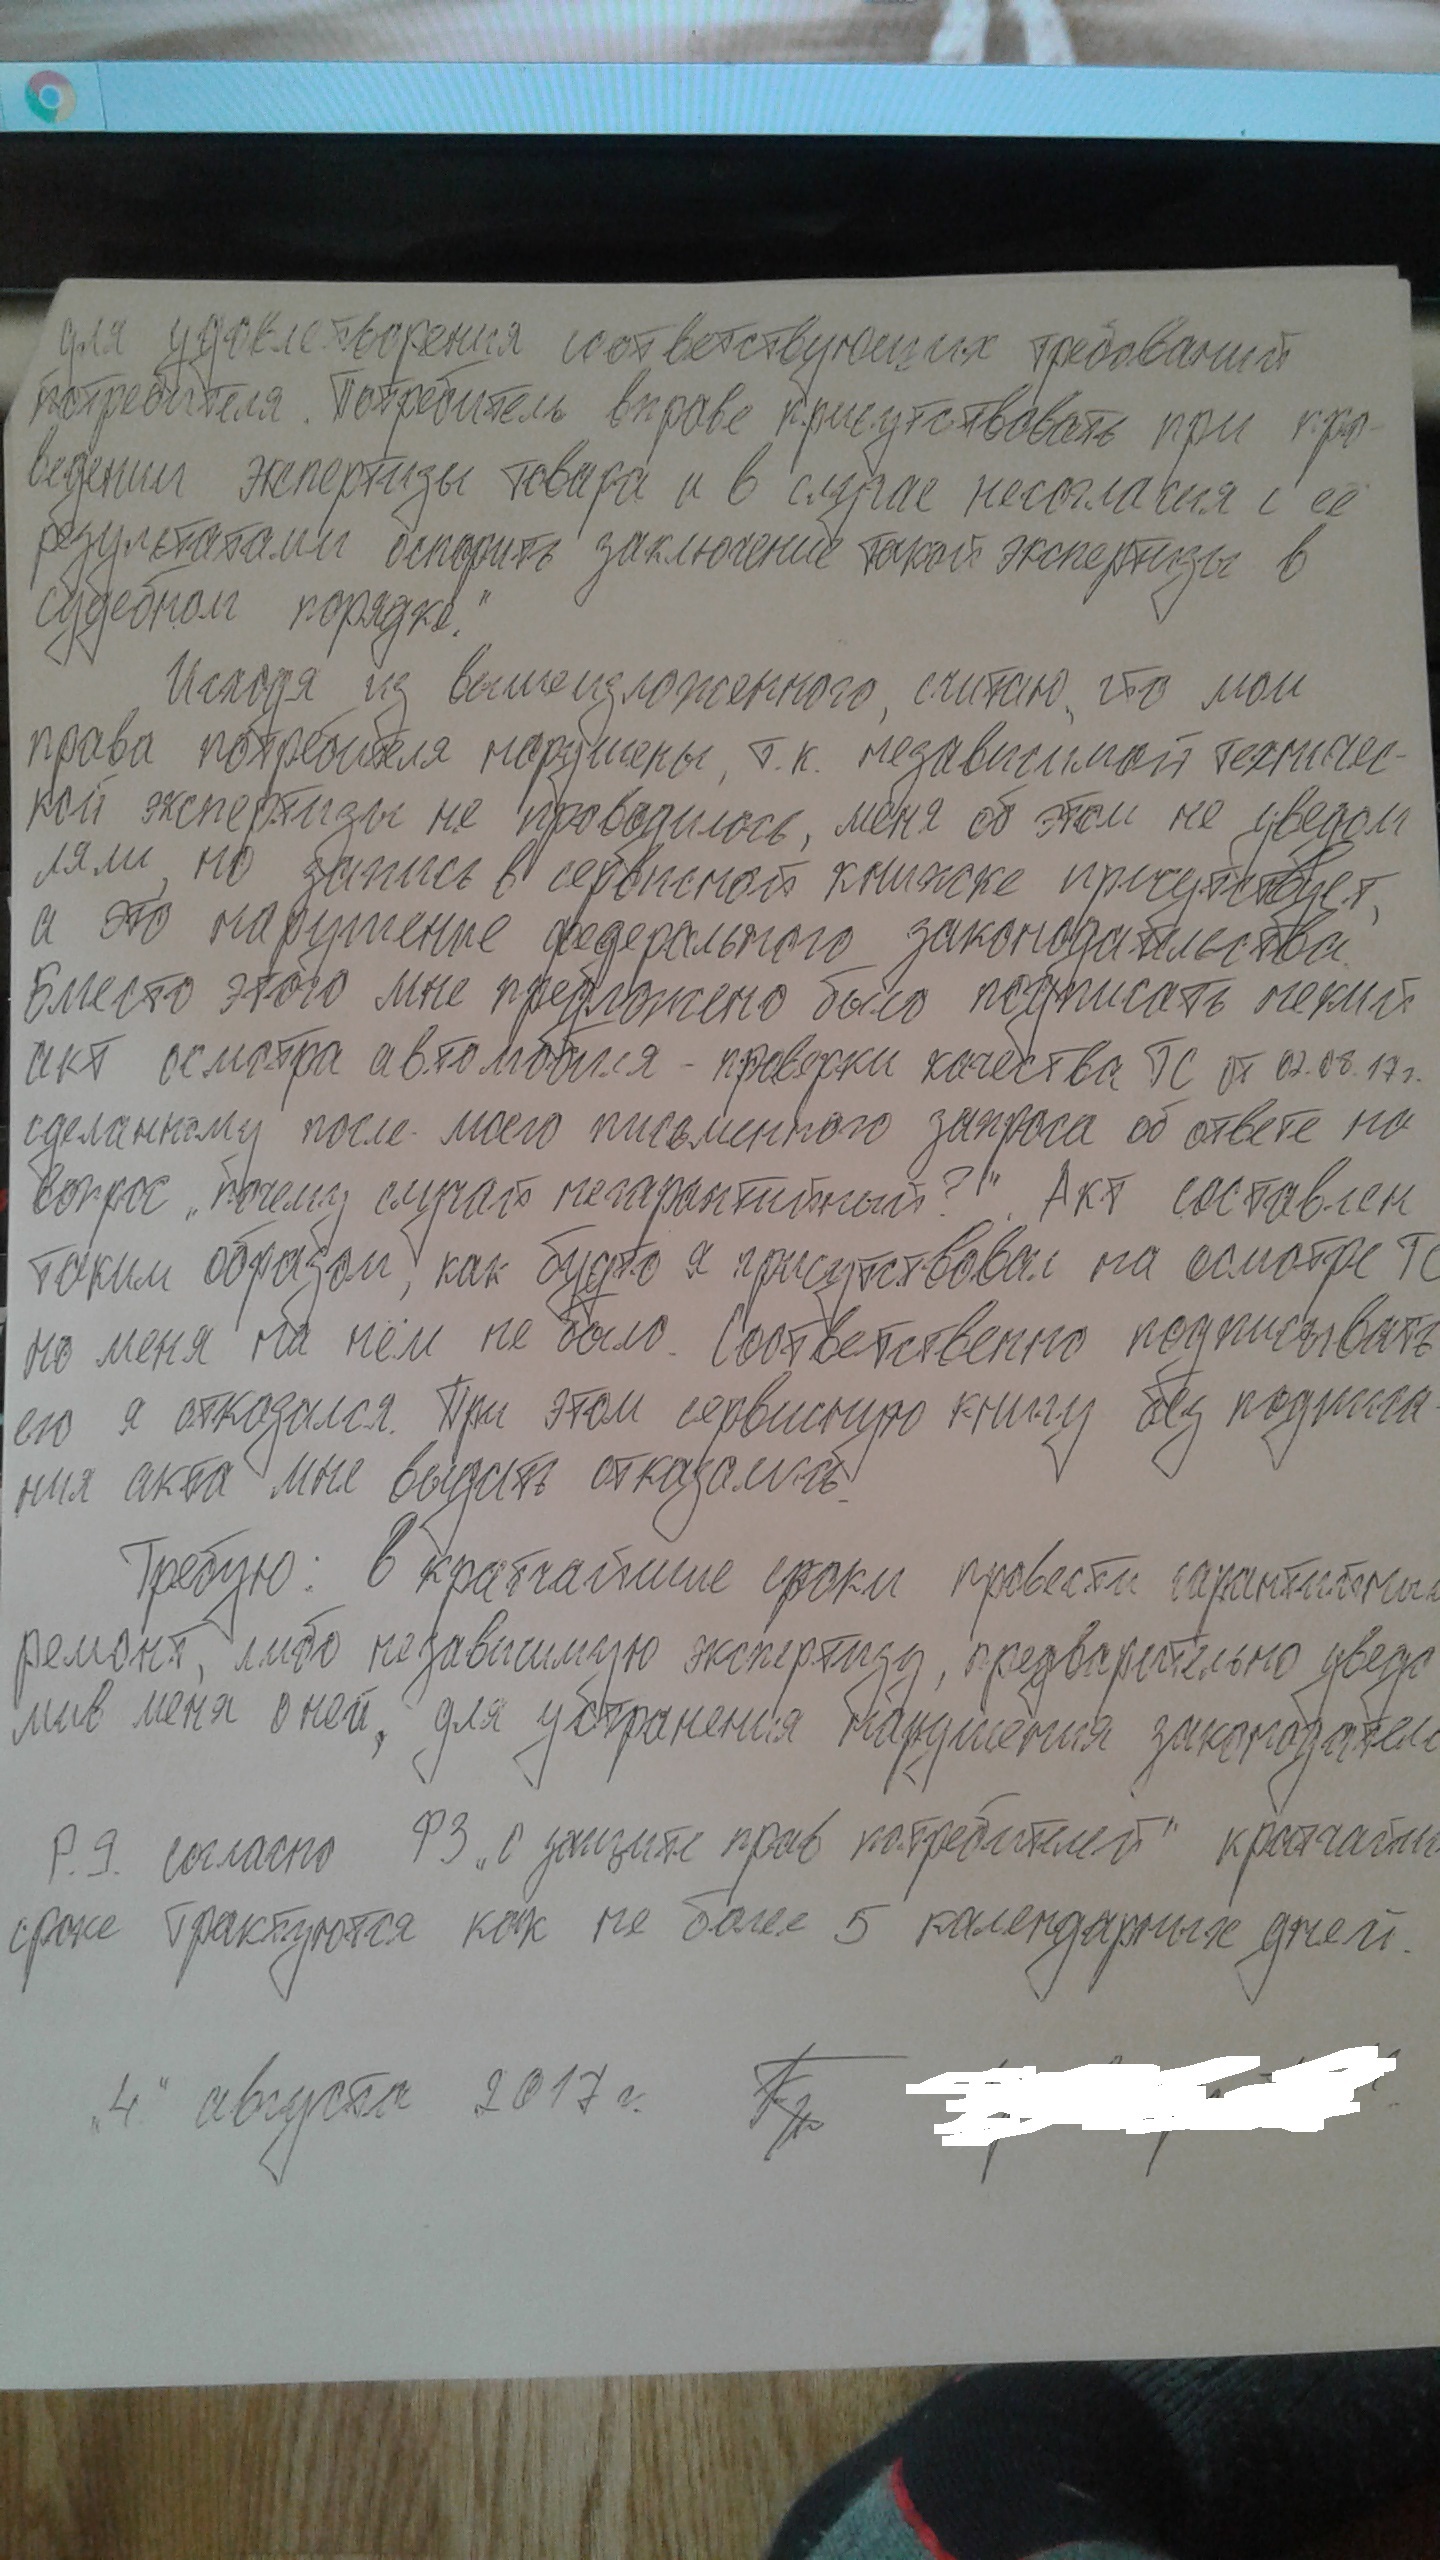 для удовлетворения соответствующих требований
потребителя. Потребитель вправе присутствовать при про-
ведении экспертизы товара и в случае несогласия с её
результатами оспорить заключение такой экспертизы в
судебном порядке."
Исходя из вышеизложенного, считаю, что мои
права потребителя нарушены, т.к. независимой техничес-
кой экспертизы не проводилось, меня об этом не уведом
ляли, но запись в сервисной книжке присутствует,
а это нарушение федерального законодательства.
Вместо этого мне предложено было подписать некий
акт осмотра автомобиля - проверки качества ТС от 02.08.17г.
сделанному после моего письменного запроса об ответе на
вопрос „почему случай негарантийный?!". Акт составлен
таким образом, как будто я присутствовал на осмотре ТС
но меня на нём не было. Соответственно подписывать
его я отказался. При этом сервисную книгу без подписа-
ния акта мне выдать отказались.
Требую: В кратчайшие сроки провести гарантийный
ремонт, либо независимую экспертизу, предварительно уведо
мив меня о ней, для устранения нарушения законодатель
P.S. согласно ФЗ „о защите прав потребителей" кратчайши
сроке трактуются как не более 5 календарных дней.
„4" августа 2017г.